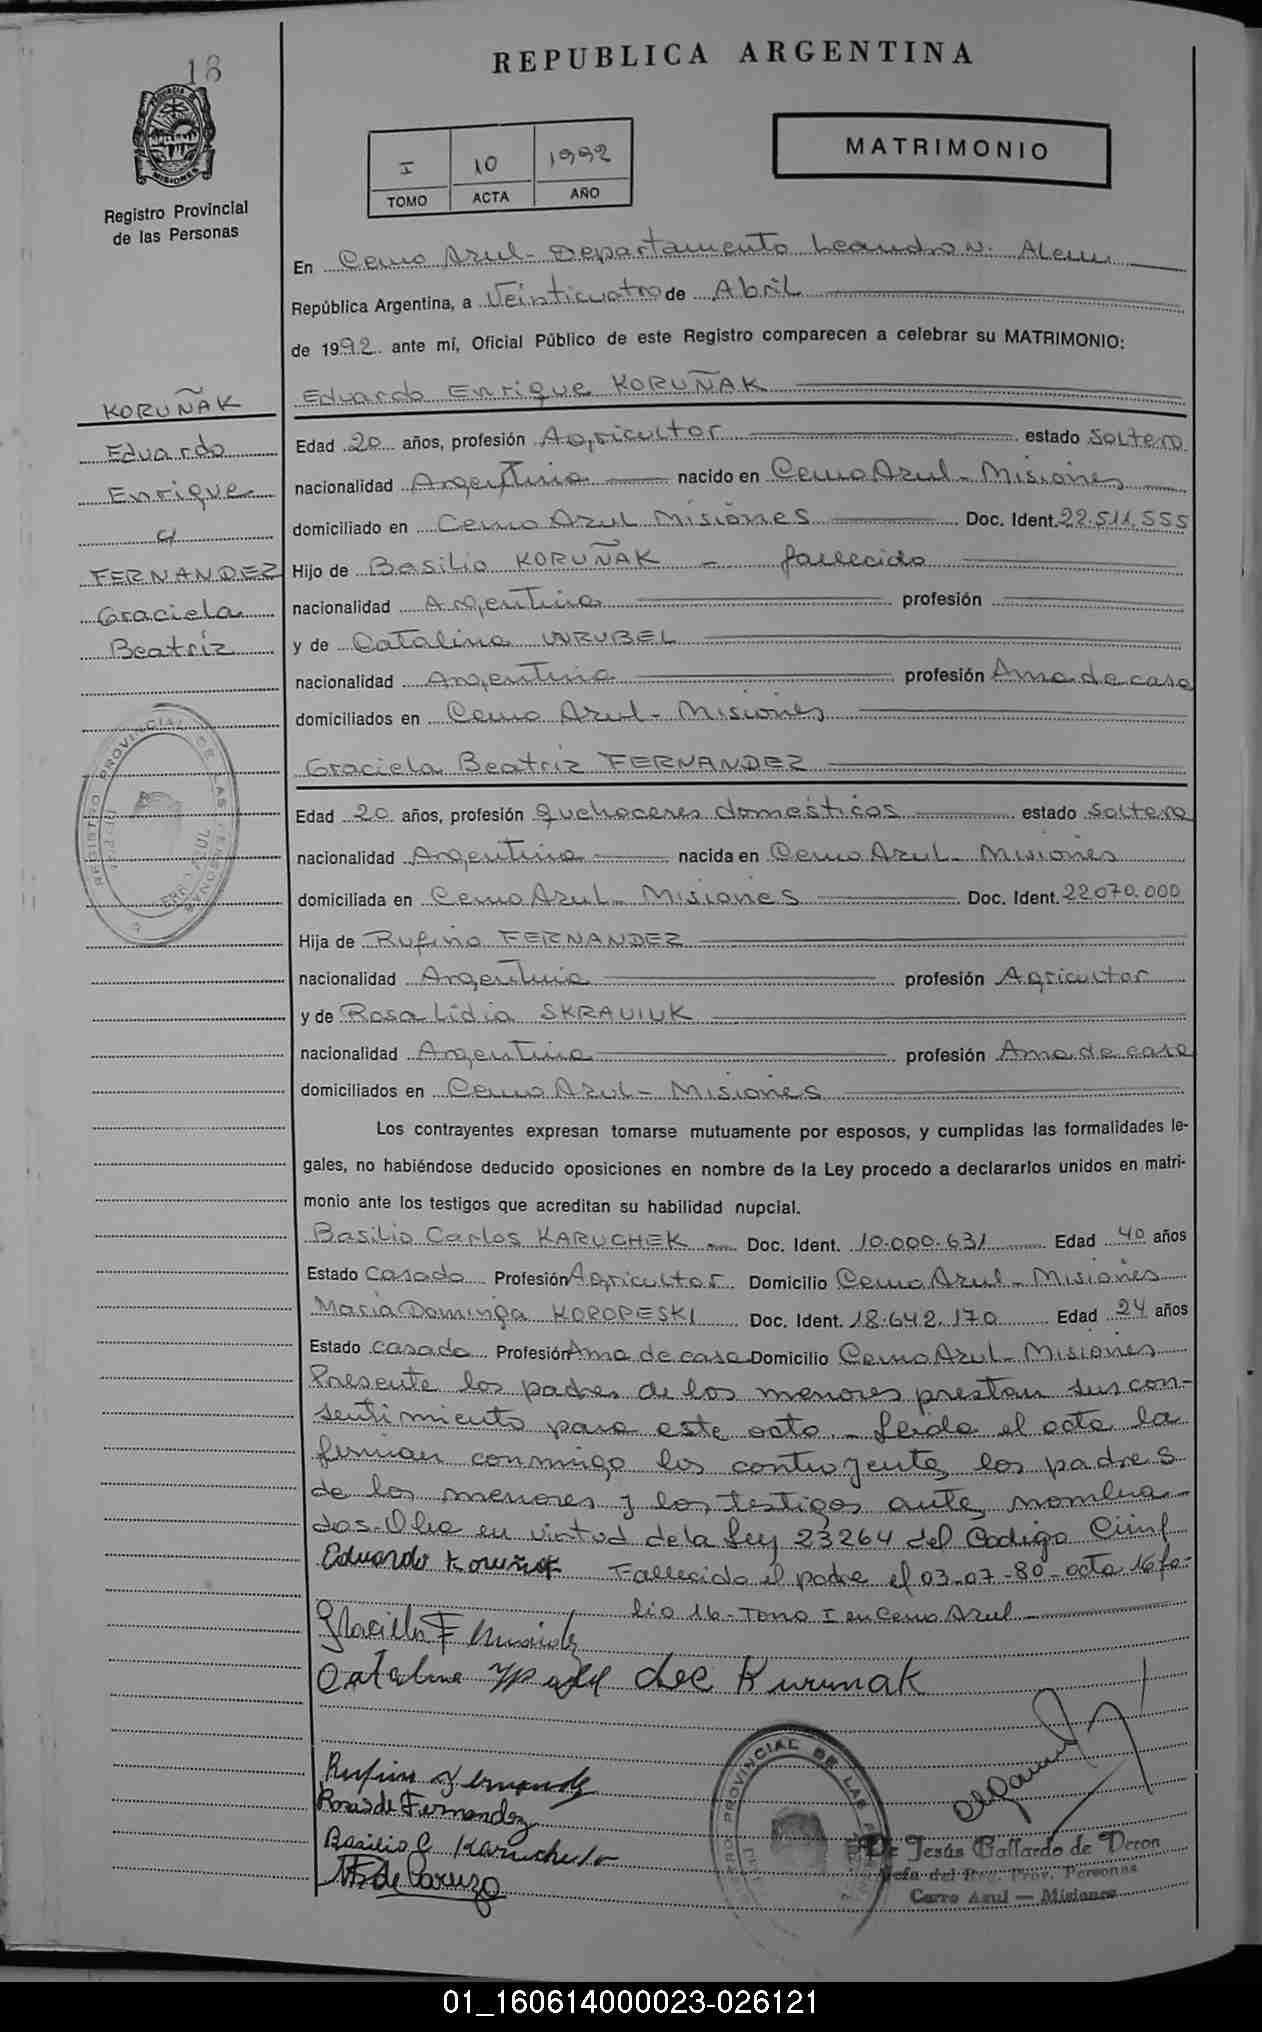 18
REPUBLICA ARGENTINA
MATRIMONIO
I 10 1992
TOMO ACTA AÑO
Registro Provincial
de las Personas
En Cerro Azul - Departamento Leandro N. Alem
República Argentina, a Veinticuatro de Abril
de 1992 ante mí, Oficial Público de este Registro comparecen a celebrar su MATRIMONIO:
Eduardo Enrique KORUÑAK
KORUÑAK
Eduardo
Enrique
c/
FERNANDEZ
Graciela
Beatríz
Edad 20 años, profesión Agricultor estado Soltero
nacionalidad Argentina nacido en Cerro Azul - Misiones
domiciliado en Cerro Azul Misiones Doc. Ident. 22.511.555
Hijo de Basilio KORUÑAK - fallecido
nacionalidad Argentina profesión
y de Catalina WRUBEL
nacionalidad Argentina profesión Ama de casa
domiciliados en Cerro Azul - Misiones
Graciela Beatriz FERNANDEZ
Edad 20 años, profesión quehaceres domesticos estado Soltera
nacionalidad Argentina nacida en Cerro Azul - Misiones
domiciliada en Cerro Azul - Misiones Doc. Ident. 22070.000
Hija de Rufino FERNANDEZ
nacionalidad Argentina profesión Agricultor
y de Rosa Lidia SKRAUIUK
nacionalidad Argentina profesión Ama de casa
domiciliados en Cerro Azul - Misiones
Los contrayentes expresan tomarse mutuamente por esposos, y cumplidas las formalidades le-
gales, no habiéndose deducido oposiciones en nombre de la Ley procedo a declararlos unidos en matri-
monio ante los testigos que acreditan su habilidad nupcial.
Basilio Carlos KARUCHEK Doc. Ident. 10.000.631 Edad 40 años
Estado Casado Profesión Agricultor Domicilio Cerro Azul - Misiones
Maria Dominga KOROPESKI Doc. Ident. 18.642.170 Edad 24 años
Estado casada Profesión Ama de casa Domicilio Cerro Azul - Misiones
Presente los padres de los menores prestan sus con-
sentimiento para este acto. - Leida el acta la
firman conmingo los contrayentes, los padres
de los menores y los testigos antes nombra-
dos. en virtud de la Ley 23264 del Codigo Civil
Eduardo Koruñak Fallecido el padre el 03-07-80 - acta 16 fo-
lio 16 - Tomo I en Cerro Azul
Graciela Fernandez
Catalina de Kurunak
Rufino Fernandez
Rosa de Fernandez
Basilio C Karuchek
de Caruzo
REGISTRO PROVINCIAL DE LAS PERSONAS
CERRO AZUL
PROVINCIAL DE LAS
De Jesús Gallardo de Deron
Jefa del Reg. Prov. Personas
Cerro Azul — Misiones
01_160614000023-026121